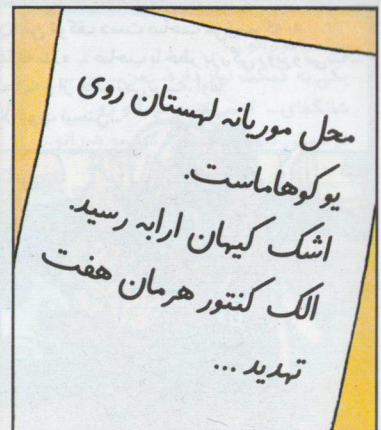 محل موریانه لهستان روی
یوکوهاماست.
اشک کیهان ارابه رسید.
الک کنتور هرمان هفت
تهدید ...